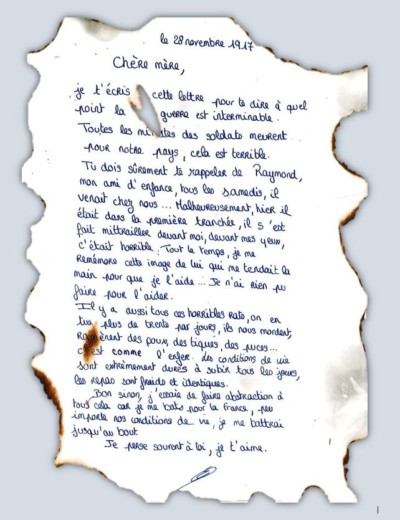 le 28 novembre 1917
Chère mère,
je t'écris cette lettre pour te dire à quel
point la guerre est interminable.
Toutes les minutes des soldats meurent
pour notre pays, cela est terrible.
Tu dois sûrement te rappeler de Raymond,
mon ami d'enfance, tous les samedis, il
venait chez nous... Malheureusement, hier il
était dans la première tranchée, il s'est
fait mittrailler devant moi, devant mes yeux,
c'était horrible. Tout le temps, je me
remémore cette image de lui qui me tendait la
main pour que je l'aide... Je n'ai rien pu
faire pour l'aider.
Il y a aussi tous ces horribles rats, on en
tue plus de trente par jours, ils nous mordent,
Ramènent des poux, des tiques, des puces...
c'est comme l'enfer. les conditions de vie
sont extrêmement dures à subir tous les jours,
les repas sont froids et identiques.
Bon sinon, j'essaie de faire abstraction à
tous cela car je me bats pour la France, peu
importe nos conditions de vie, je me battrai
jusqu'au bout.
Je pense souvent à toi, je t'aime.